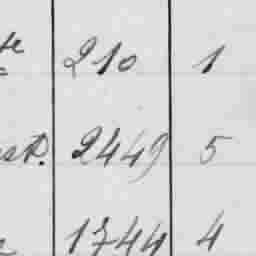 210 1
2449 5
1744 4